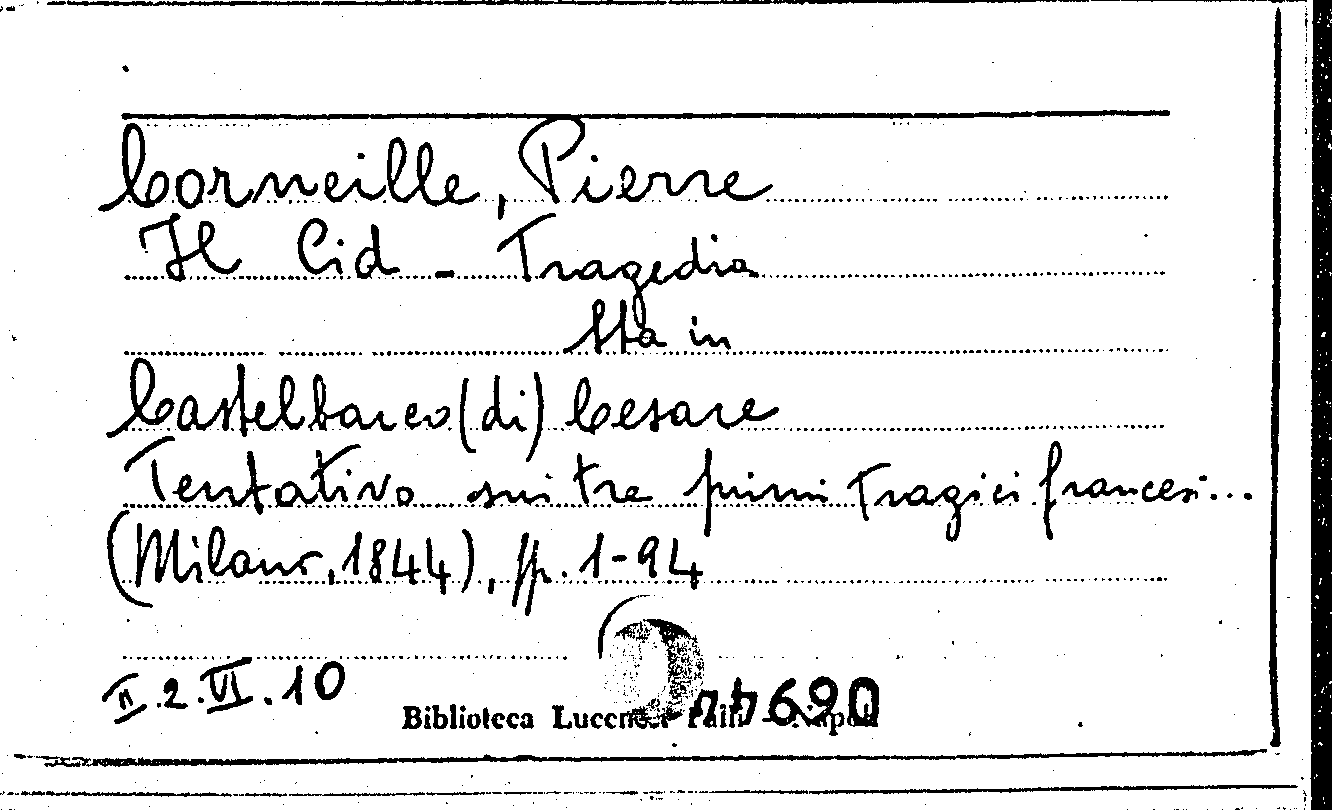 Corneille, Pierre
Il Cid - Tragedia
Sta in
Castelbarco (di) Cesare
Tentativo sui tre primi tragici francesi...
(Milano, 1844), pp. 1-94
II.2.VI.10
Biblioteca Lucchesi Palli - Napoli